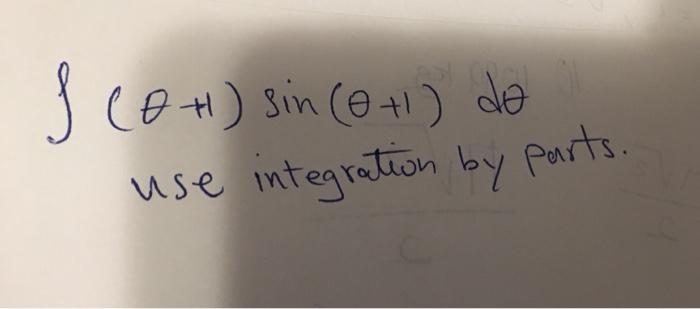 ∫ (θ+1) sin(θ+1) dθ
use integration by parts.